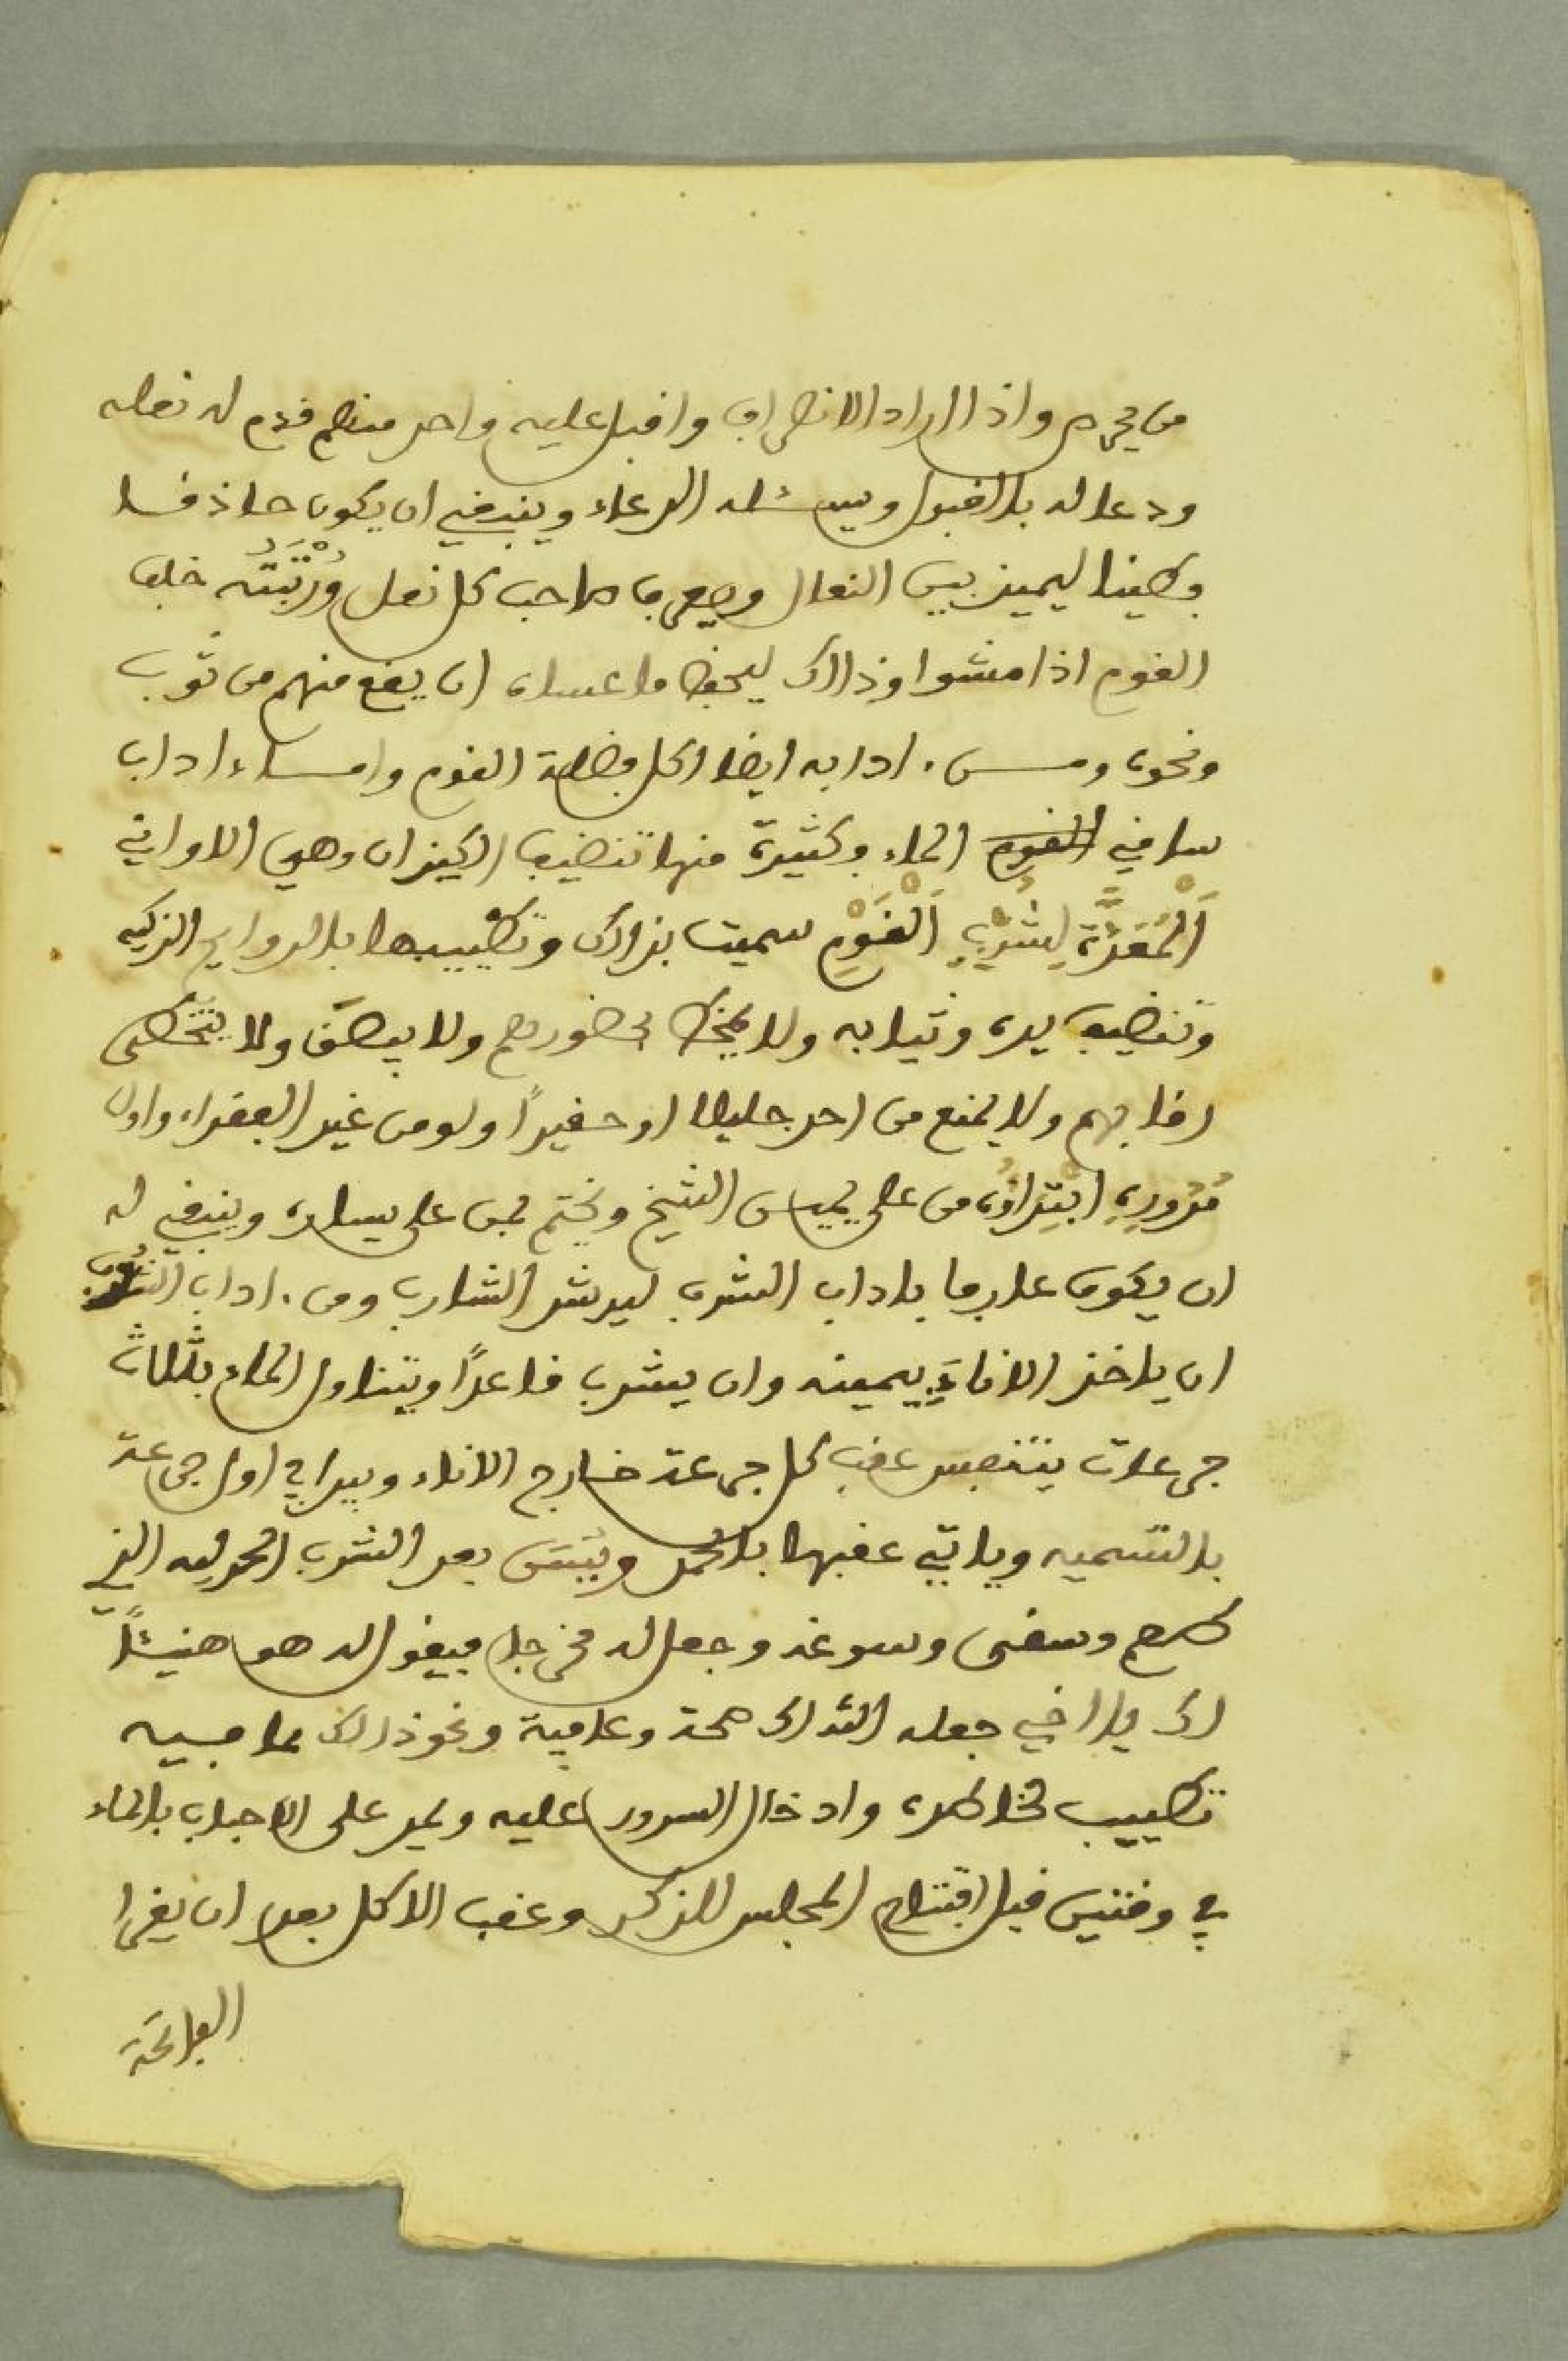 من يحرم واذا اراد الانصراف واقبل عليه واحد منهم قدم له نعله
ودعا له بالقبول ويسئله الدعاء وينبغي ان يكون حاذقا
فطينا ليميز بين النعال ويعرف صاحب كل نعل ورُتْبَتُه خلف
القوم اذا مشوا وذالك ليحفظ ما عساه ان يقع منهم من ثوب
ونحوه ومن ادابه ايضا اكل فضلة القوم وامـــا اداب
ساقي القوم الماء فكثيرة منها تنضيف الكيزان وهي الاواني
اَلْمُعَدَّة لِشُرْبِ اَلْقَوْمِ سميت بذالك وتطييبها بالروايح الزكيه
وتنضيف يده وثيابه ولا يمخط بحضورهم ولا يبصق ولا يتخطى
رقابهم ولا يمنع من احد جليلا او حقيراً ولو من غير الفقراء واول
مُرُورِهِ ابْتِداؤُه من على يمين الشيخ ويختم بمن على يساره وينبغي له
ان يكون عارفا باداب الشرب ليرشد الشارب ومن اداب الشُّرب
ان ياخذ الاناءَ بيمينه وان يشرب قاعداً ويتناول الماء بثلاث
جرعات يتنفس عقب كل جرعة خارج الاناء ويبدا في اول جرعة
بالتسميه وياتي عقبها بالحمد ويُسَنّ بعد الشرب الحمد لله الذي
اطعم وسقى وسوغه وجعل له مخرجا فيقول له هو هنيئاً
لك يا اخي جعله الله لك صحة وعافية ونحو ذالك مما فيه
تطييب خاطره وادخال السرور عليه ويمر على الاحباب بالماء
في وقتين قبل افتتاح المجلس للذكر وعقب الاكل بعد ان يقرا
الفاتحة